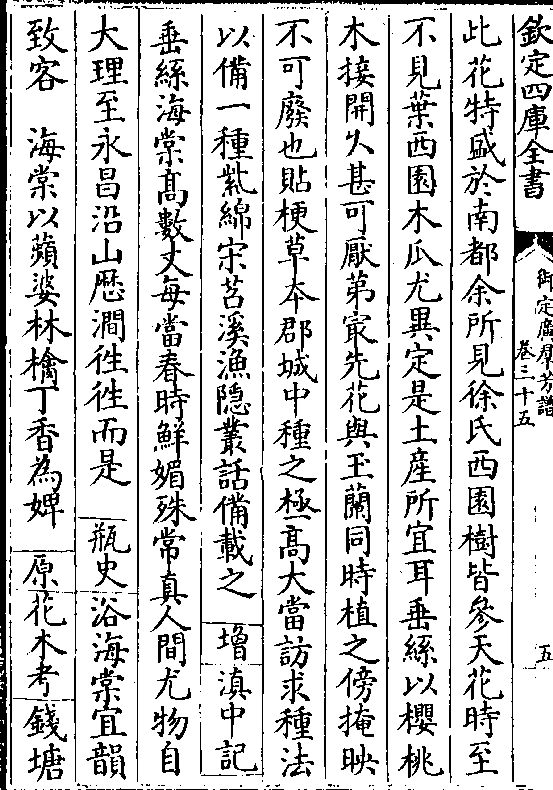 欽定四庫全書
御定廣羣芳譜
卷三十五
五
此花特盛於南都余所見徐氏西園樹皆參天花時至
不見葉西園木瓜尤異定是土産所宜耳垂絲以櫻桃
木接開久甚可厭第㝡先花與玉蘭同時植之傍掩映
不可廢也貼梗草夲郡城中種之極髙大當訪求種法
以備一種紫綿宋苕溪漁隐叢話備載之　增滇中記
垂絲海棠髙數丈每當春時鮮媚殊常真人間尤物自
大理至永昌沿山歴澗徃徃而是　瓶史浴海棠宜韻
致客　海棠以蘋婆林檎丁香為婢　原花木考錢塘